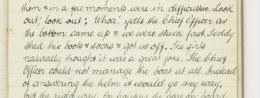 them & in a few moments were in difficulties. Look
out', look out'; Whoa' yells the Chief Officer as
the bottom came up & we were stuck fast. Teddy
shed his boots & socks & got us off. The girls
naturally thought it was a great joke. The Chief
Officer could not manage the boat at all. Instead
of answering the helm it would go any way,
but the right way. On having the boys on board